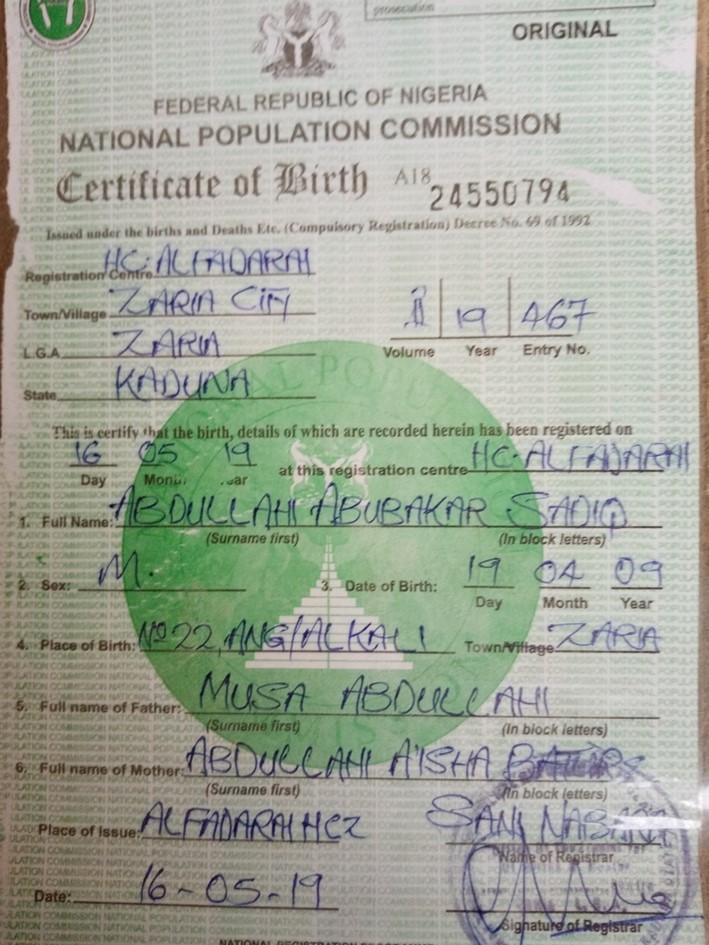 prosecution
ORIGINAL
FEDERAL REPUBLIC OF NIGERIA
NATIONAL POPULATION COMMISSION
Certificate of Birth A18 24550794
Issued under the births and Deaths Etc. (Compulsory Registration) Decree No. 69 of 1992
Registration Centre HC: ALFADARAI
Town/Village ZARIA CITY
1 19 467
L.G.A ZARIA
Volume Year Entry No.
State KADUNA
This is certify that the birth, details of which are recorded herein has been registered on
16 05 19 at this registration centre HC-ALFADARAI
Day Month
1. Full Name: ABDULLAHI ABUBAKAR SADIQ
(Surname first) (In block letters)
2. Sex: M. 3. Date of Birth: 19 04 09
Day Month Year
4. Place of Birth: No 22, ANG/ALKALI Town/Village ZARIA
5. Full name of Father: MUSA ABDULLAHI
(Surname first) (In block letters)
6. Full name of Mother: ABDULLAHI A'ISHA
(Surname first) (In block letters)
Place of Issue: ALFADARAI HCZ SANI
Name of Registrar
Date: 16-05-19
Signature of Registrar